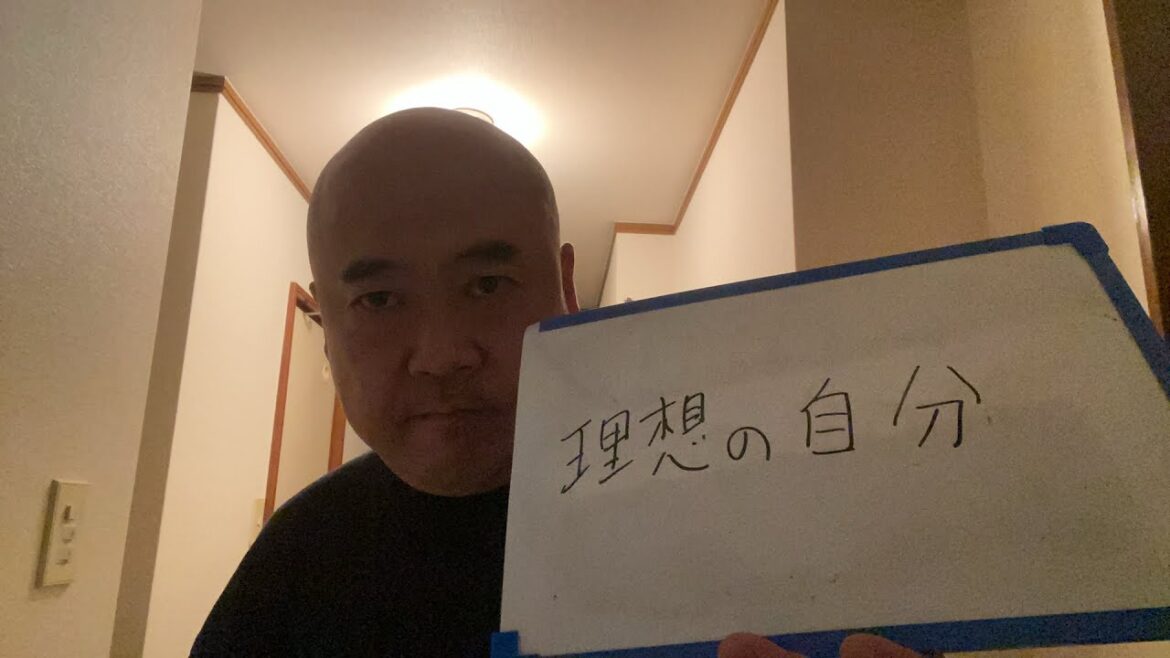 理想の自分